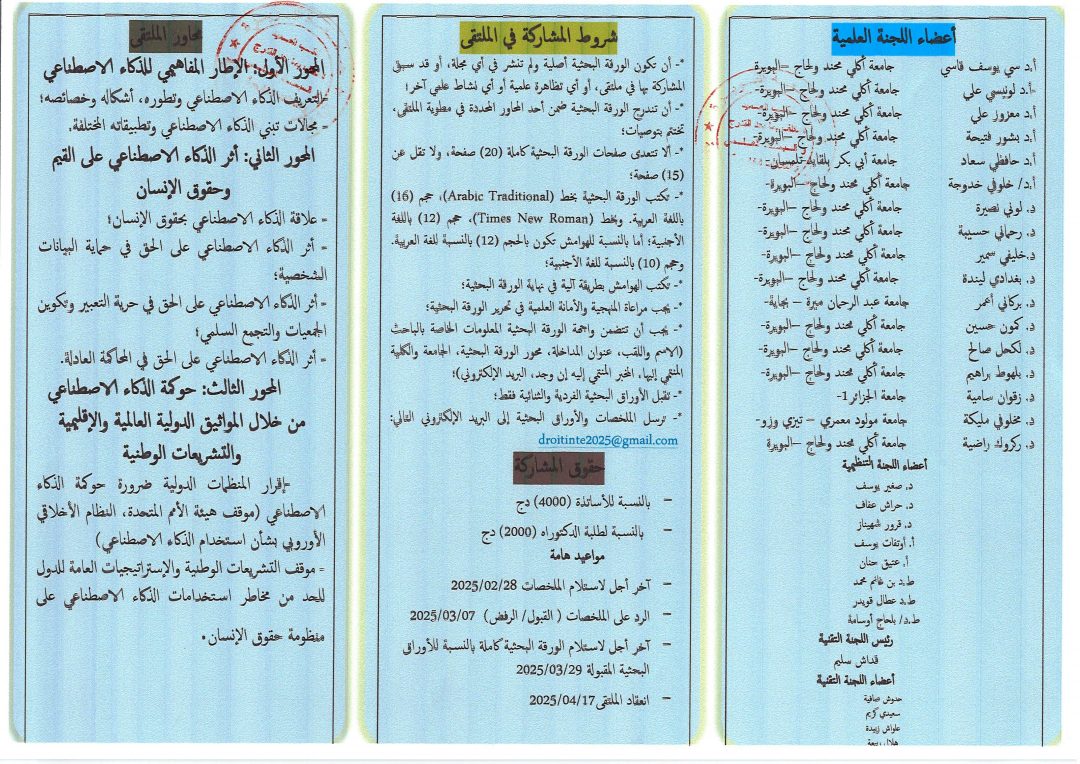 أعضاء اللجنة العلمية
أ.د سي يوسف قاسي جامعة أكلي محند ولحاج –البويرة-
أ.د لونيسي علي جامعة أكلي محند ولحاج –البويرة-
أ.د معزوز علي جامعة أكلي محند ولحاج –البويرة-
أ.د بشور فتيحة جامعة أكلي محند ولحاج –البويرة-
أ.د حافظي سعاد جامعة أبي بكر بلقايد-تلمسان-
أ.د/ خلوفي خدوجة جامعة أكلي محند ولحاج –البويرة-
د. لوني نصيرة جامعة أكلي محند ولحاج –البويرة-
د. رحماني حسيبة جامعة أكلي محند ولحاج –البويرة-
د.خليفي سمير جامعة أكلي محند ولحاج –البويرة-
د. بغدادي ليندة جامعة أكلي محند ولحاج –البويرة-
د. بركاني أعمر جامعة عبد الرحمان ميرة – بجاية-
د. كمون حسين جامعة أكلي محند ولحاج –البويرة-
د. لكحل صالح جامعة أكلي محند ولحاج –البويرة-
د. بلهوط براهيم جامعة أكلي محند ولحاج –البويرة-
د. زقوان سامية جامعة الجزائر 1-
د. مخلوفي مليكة جامعة مولود معمري – تيزي وزو-
د. ركروك راضية جامعة أكلي محند ولحاج –البويرة
أعضاء اللجنة التنظيمية
د. صغير يوسف
د. حراش عفاف
د. قرور شهيناز
أ. أوتفات يوسف
أ. عتيق حنان
ط.د بن غانم محمد
ط.د عطال قويدر
ط.د/ بلحاج أوسامة
رئيس اللجنة التقنية
قداش سليم
أعضاء اللجنة التقنية
حدوش صافية
سعيدي كريم
علواش زبيدة
هلال ربيعة
شروط المشاركة في الملتقى
*- أن تكون الورقة البحثية أصلية ولم تنشر في أي مجلة، أو قد سبق
المشاركة بها في ملتقى، أو أي تظاهرة علمية أو أي نشاط علمي آخر؛
*- أن تندرج الورقة البحثية ضمن أحد المحاور المحددة في مطوية الملتقى.
تختتم بتوصيات؛
*- ألا تتعدى صفحات الورقة البحثية كاملة (20) صفحة، ولا تقل عن
(15) صفحة؛
*- تكتب الورقة البحثية بخط (Arabic Traditional)، حجم (16)
باللغة العربية. وبخط (Times New Roman)، حجم (12) باللغة
الأجنبية؛ أما بالنسبة للهوامش تكون بالحجم (12) بالنسبة للغة العربية.
وحجم (10) بالنسبة للغة الأجنبية؛
*- تكتب الهوامش بطريقة آلية في نهاية الورقة البحثية؛
*- يجب مراعاة المنهجية والأمانة العلمية في تحرير الورقة البحثية؛
*- يجب أن تتضمن واجهة الورقة البحثية المعلومات الخاصة بالباحث
(الاسم واللقب، عنوان المداخلة، محور الورقة البحثية، الجامعة والكلية
المنتمي إليها، المخبر المنتمي إليه إن وجد، البريد الإلكتروني)؛
*- تقبل الأوراق البحثية الفردية والثنائية فقط؛
*- ترسل الملخصات والأوراق البحثية إلى البريد الإلكتروني التالي:
droitinte2025@gmail.com
حقوق المشاركة
– بالنسبة للأساتذة (4000) دج
– بالنسبة لطلبة الدكتوراه (2000) دج
مواعيد هامة
– آخر أجل لاستلام الملخصات 2025/02/28
– الرد على الملخصات ( القبول/ الرفض) 2025/03/07
– آخر أجل لاستلام الورقة البحثية كاملة بالنسبة للأوراق
البحثية المقبولة 2025/03/29
– انعقاد الملتقى2025/04/17
محاور الملتقى
المحور الأول: الإطار المفاهيمي للذكاء الاصطناعي
-لتعريف الذكاء الاصطناعي وتطوره، أشكاله وخصائصه؛
- مجالات تبني الذكاء الاصطناعي وتطبيقاته المختلفة.
المحور الثاني: أثر الذكاء الاصطناعي على القيم
وحقوق الإنسان
- علاقة الذكاء الاصطناعي بحقوق الإنسان؛
- أثر الذكاء الاصطناعي على الحق في حماية البيانات
الشخصية؛
- أثر الذكاء الاصطناعي على الحق في حرية التعبير وتكوين
الجمعيات والتجمع السلمي؛
- أثر الذكاء الاصطناعي على الحق في المحاكمة العادلة.
المحور الثالث: حوكمة الذكاء الاصطناعي
من خلال المواثيق الدولية العالمية والإقليمية
والتشريعات الوطنية
-إقرار المنظمات الدولية ضرورة حوكمة الذكاء
الاصطناعي (موقف هيئة الأمم المتحدة، النظام الأخلاقي
الأوروبي بشأن استخدام الذكاء الاصطناعي)
- موقف التشريعات الوطنية والإستراتيجيات العامة للدول
للحد من مخاطر استخدامات الذكاء الاصطناعي على
منظومة حقوق الإنسان.